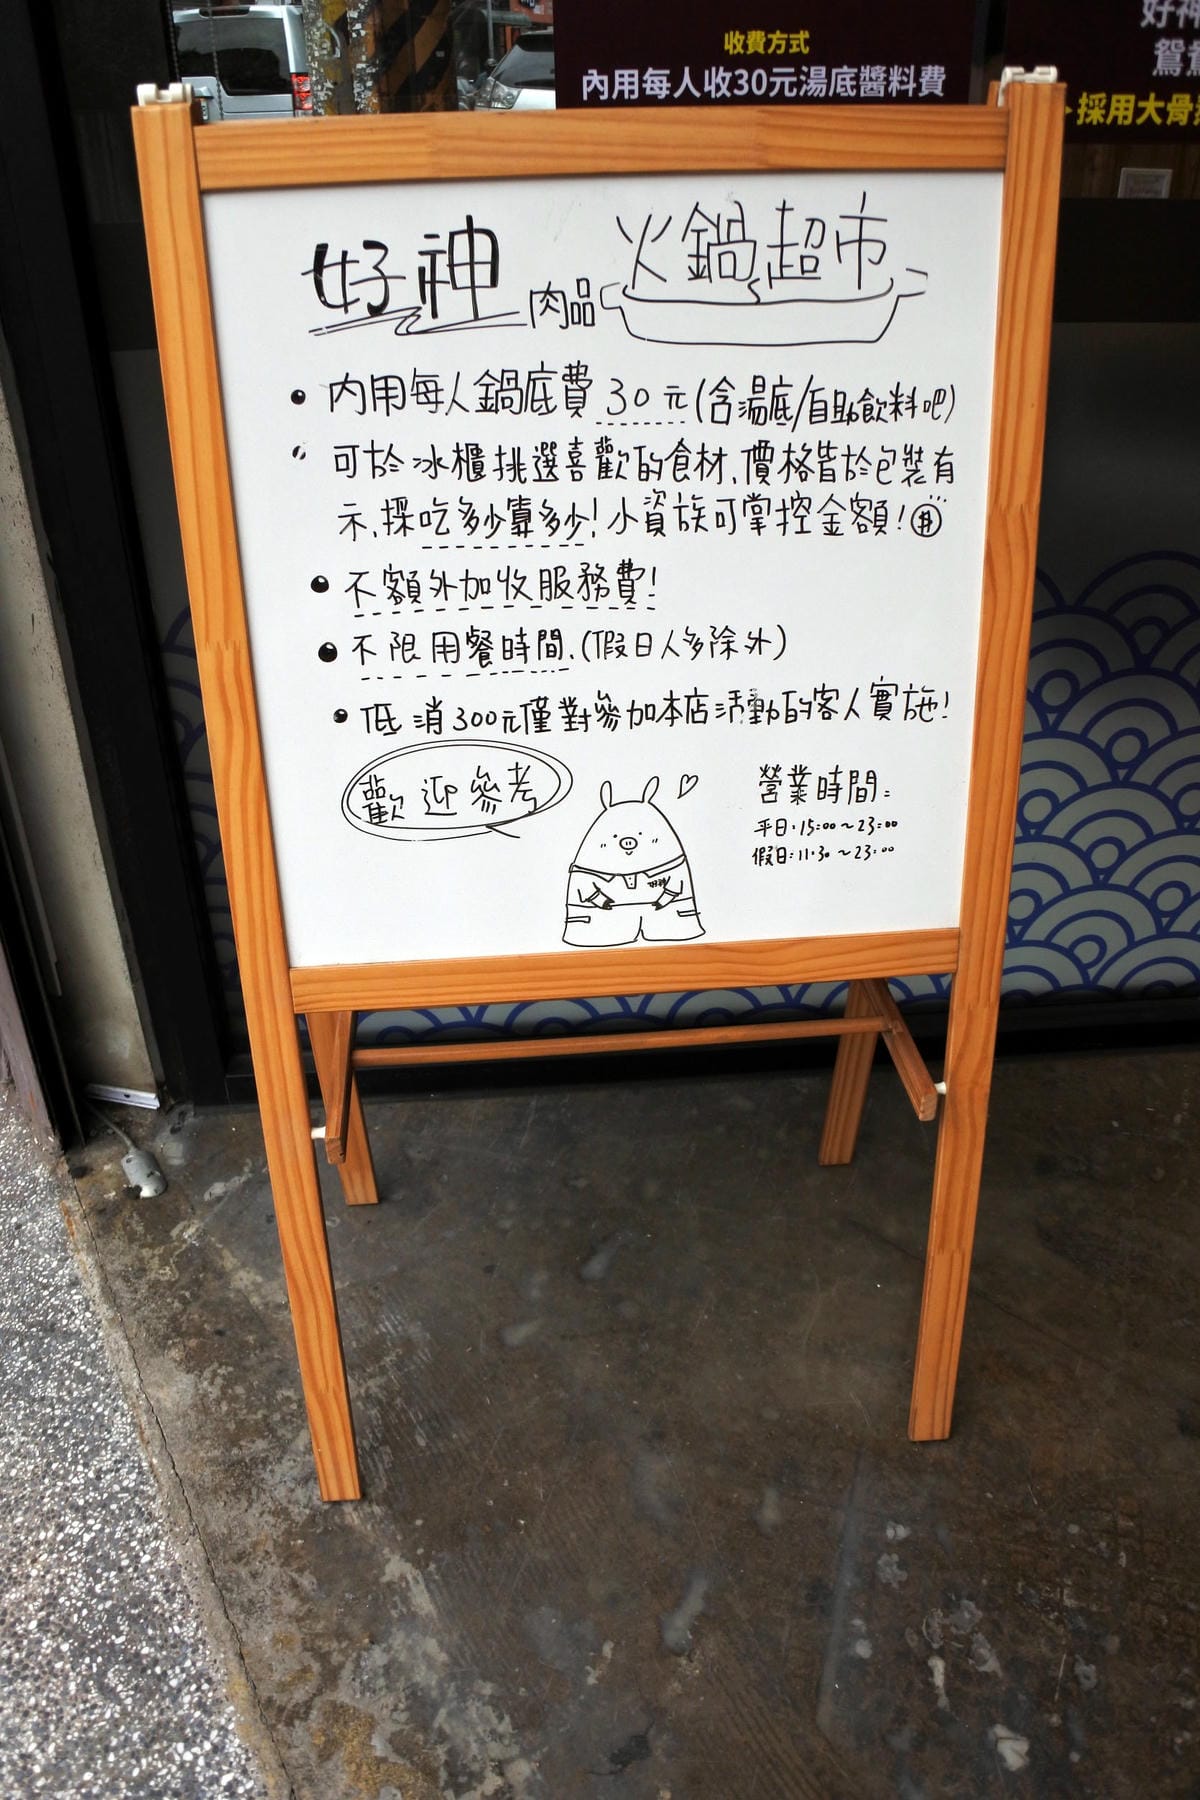 收費方式
內用每人收30元湯底醬料費
好神
鴛
採用大骨
好神 肉品 火鍋超市
• 內用每人鍋底費 30元(含湯底/自助飲料吧)
• 可於冰櫃挑選喜歡的食材、價格皆於包裝有
示、採吃多少算多少!小資族可掌控金額!
• 不額外加收服務費!
• 不限用餐時間、(假日人多除外)
• 低消300元僅對參加本店活動的客人實施!
歡迎參考
營業時間:
平日:15:00~23:00
假日:11:30~23:00
好神